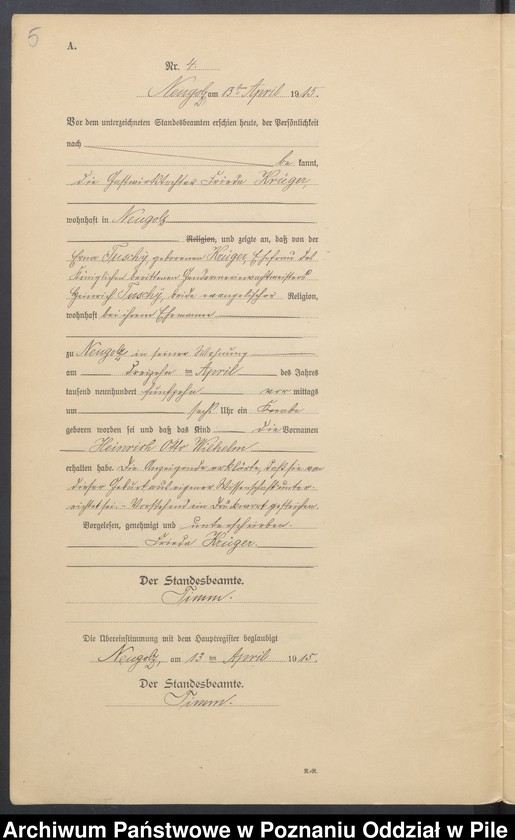 5
A.
Nr. 4.
Neugolz, am 13ten April 1915.
Vor dem unterzeichneten Standesbeamten erschien heute, der Persönlichkeit
nach
be kannt,
die Gastwirtstochter Frieda Krüger,
wohnhaft in Neugolz
Religion, und zeigte an, daß von der
Erna Tuschy geborenen Krüger, Ehefrau des
Königlichen berittenen Gendarmeriewachtmeisters
Heinrich Tuschy, beide evangelischer Religion,
wohnhaft bei ihrem Ehemanne
zu Neugolz in seiner Wohnung
am dreizehn ten April des Jahres
tausend neunhundert fünfzehn vor mittags
um sechs Uhr ein Knabe
geboren worden sei und daß das Kind die Vornamen
Heinrich Otto Wilhelm
erhalten habe. Die Anzeigende erklärte, daß sie von
dieser Geburt aus eigener Wissenschaft unter-
richtet sei. - Vorstehend ein Druckwort gestrichen.
Vorgelesen, genehmigt und unterschrieben
Frieda Krüger.
Der Standesbeamte.
Timm.
Die Übereinstimmung mit dem Hauptregister beglaubigt
Neugolz, am 13 ten April 1915.
Der Standesbeamte.
Timm.
R.-R.
Archiwum Państwowe w Poznaniu Oddział w Pile